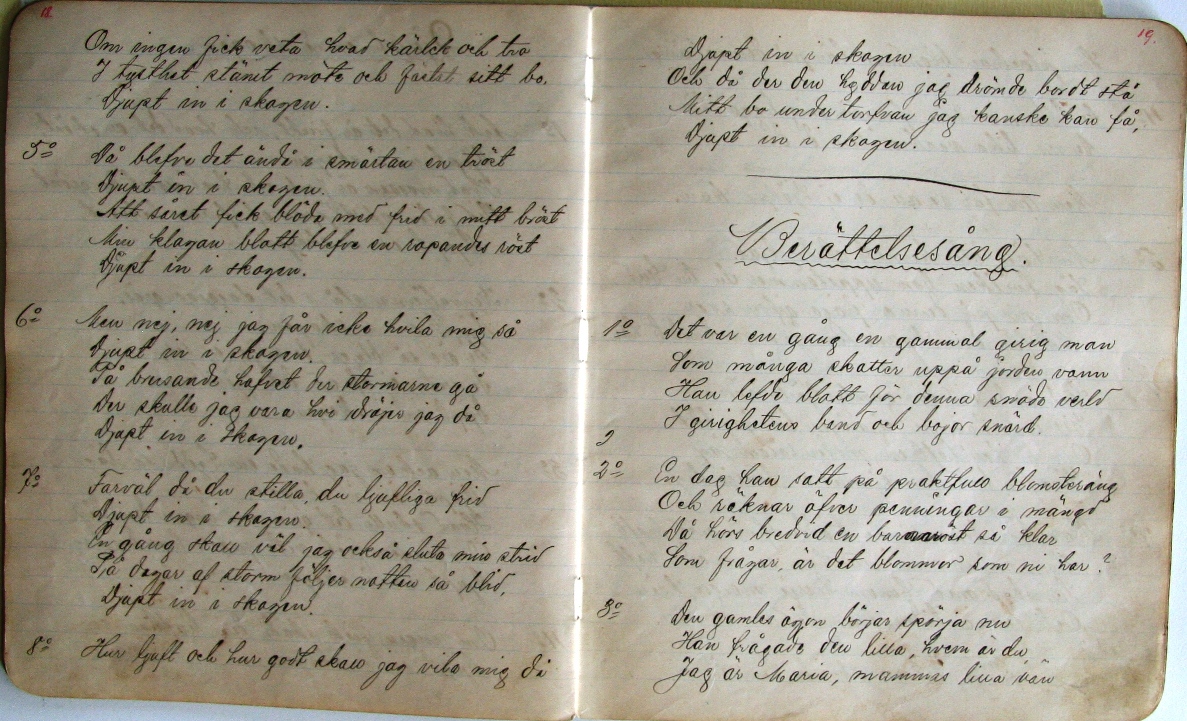 18.
Om ingen fick veta hvad kärlek och tro
I tysthet stämt möte och fästat sitt bo.
Djupt in i skogen.
5o Då blefve det ändå i smärtan en tröst
Djupt in i skogen.
Att såret fick blöda med frid i mitt bröst
Min klagan blott blefve en ropandes röst
Djupt in i skogen.
6o Men nej, nej jag får icke hvila mig så
Djupt in i skogen.
På brusande hafvet der stormarne gå
Der skulle jag vara hvi dröjer jag då
Djupt in i skogen.
7o Farväl då du stilla, du ljufliga frid
Djupt in i skogen.
En gång skall väl jag också sluta min strid
På dagar af storm följer natten så blid,
Djupt in i skogen.
8o Hur ljuft och hur godt skall jag vila mig då
19.
Djupt in i skogen
Och då der den hyddan jag drömde bordt stå
Mitt bo under torfvan jag kanske kan få,
Djupt in i skogen.
Berättelsesång.
1o Det var en gång en gammal girig man
Som många skatter uppå jorden vann
Han lefde blott för denna snöda verld
I girighetens band och bojor snärd.
2
2o En dag han satt på praktfull blomsteräng
Och räknar öfver penningar i mängd
Då hörs bredvid en barnaröst så klar
Som frågar, är det blommor som ni har?
3o Den gamles ögon börjar spörja nu
Han frågade den lilla, hvem är du
Jag är Maria, mammas lilla vän